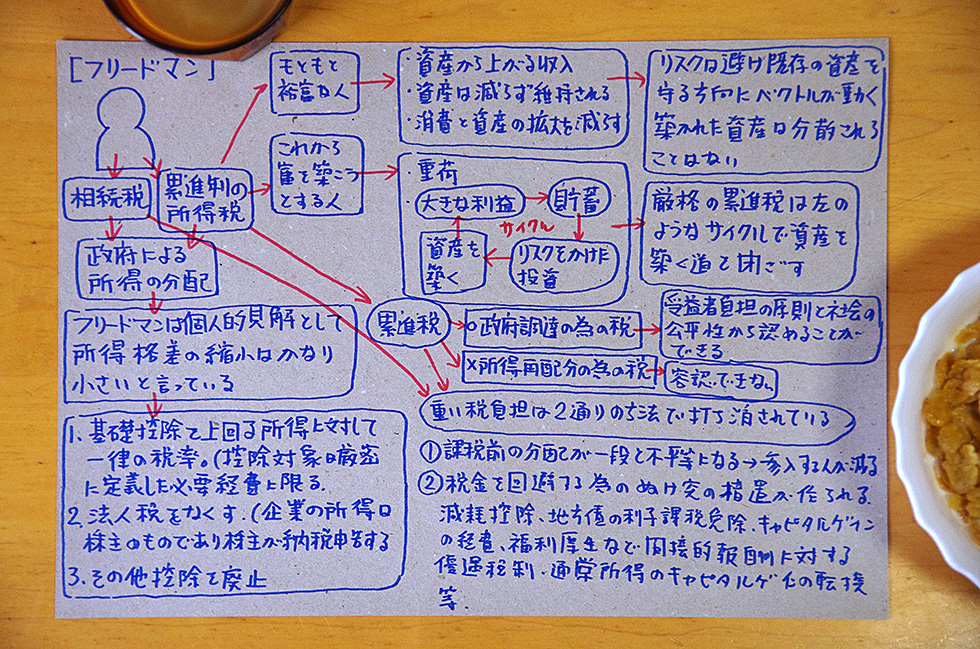 [フリードマン]
もともと
裕富な人
・資産から上がる収入
・資産は減らず維持される
・消費と資産の拡大を減らす
リスクは避け既存の資産を
守る方向にベクトルが動く
築かれた資産は分散される
ことはない
相続税
累進制の
所得税
これから
富を築こう
とする人
・重荷
・大きな利益
貯蓄
サイクル
資産を
築く
リスクをかけた
投資
厳格の累進税は左の
ようなサイクルで資産を
築く道を閉ざす
政府による
所得の分配
フリードマンは個人的見解として
所得格差の縮小はかなり
小さいと言っている
累進税
○政府調達の為の税
受益者負担の原則と社会の
公平性から認めることが
できる
×所得再配分の為の税
容認できない
重い税負担は2通りの方法で打ち消されている
1、基礎控除を上回る所得に対して
一律の税率。(控除対象は厳密
に定義した必要経費に限る.
2、法人税をなくす.(企業の所得は
株主のものであり株主が納税申告する
3、その他控除を廃止
①課税前の分配が一段と不平等になる→参入する人が減る
②税金を回避する為のぬけ穴の措置が作られる.
減耗控除、地方債の利子課税免除、キャピタルゲイン
の経費、福利厚生など間接的報酬に対する
優遇税制・通常所得のキャピタルゲインの転換
等.